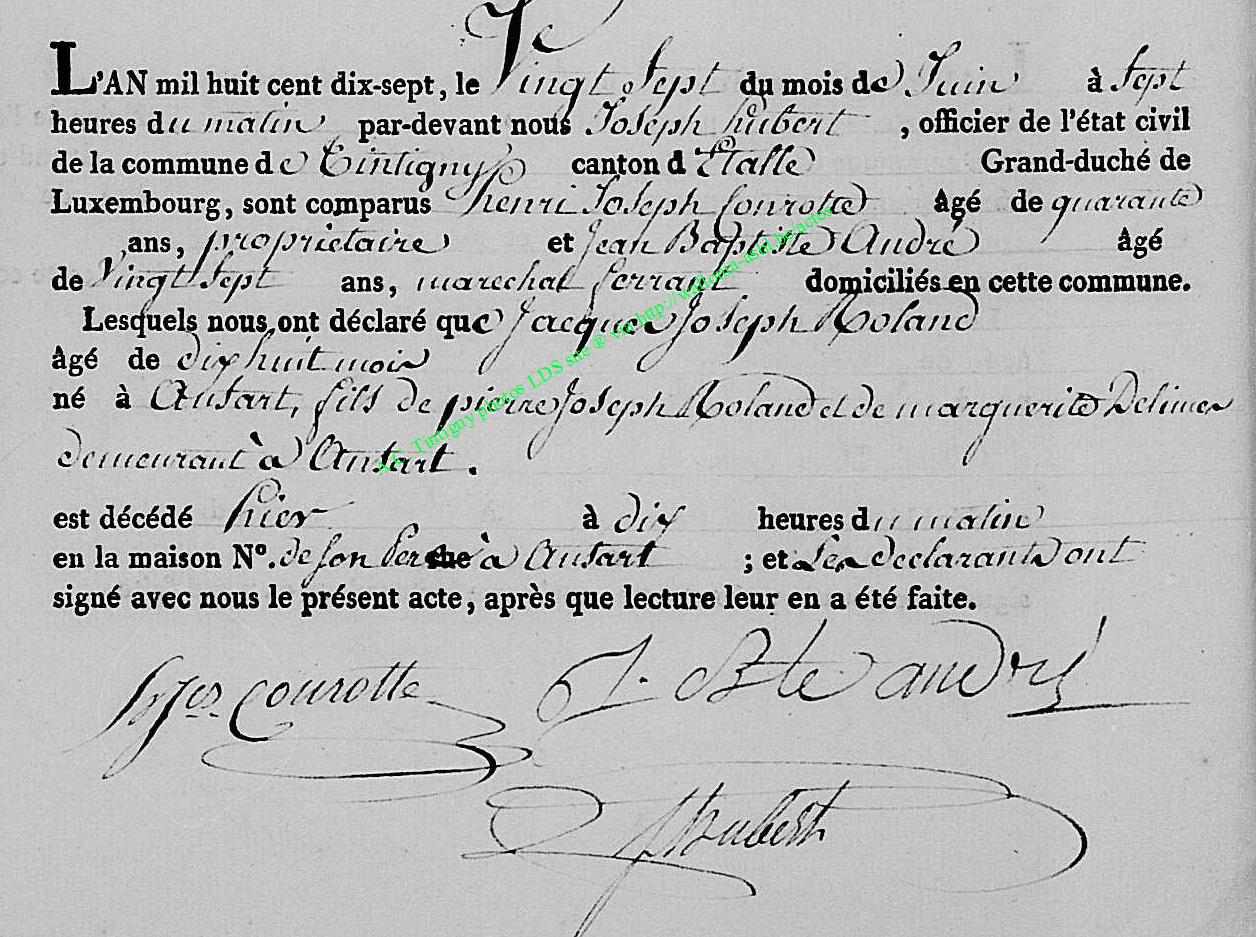 L'AN mil huit cent dix-sept, le Vingt Sept du mois de Juin à Sept
heures du matin par-devant nous Joseph hubert , officier de l'état civil
de la commune de Tintigny canton d'Etalle Grand-duché de
Luxembourg, sont comparus henri Joseph Courotte âgé de quarante
ans, proprietaire et Jean Baptiste André âgé
de Vingt Sept ans, marechal ferrant domiciliés en cette commune.
Lesquels nous ont déclaré que Jacques Joseph Roland
âgé de dix huit mois
né à Ansart, fils de pierre Joseph Roland et de marguerite Delimes
demeurant à Ansart.
est décédé hier à dix heures du matin
en la maison N°. de son Pere à Ansart ; et Les declarants ont
signé avec nous le présent acte, après que lecture leur en a été faite.
Courotte J. Bte andré
Hubert
A.E. Tintigny photos LDS site ® via http://wallonia-asbl.be/actes